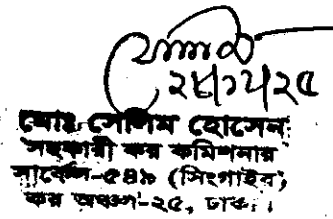 ২৮/১২/২৫
মোঃ সেলিম হোসেন
সহকারী কর কমিশনার
সার্কেল-৫৪৯ (সিংগাইর)
কর অঞ্চল-২৫, ঢাকা।